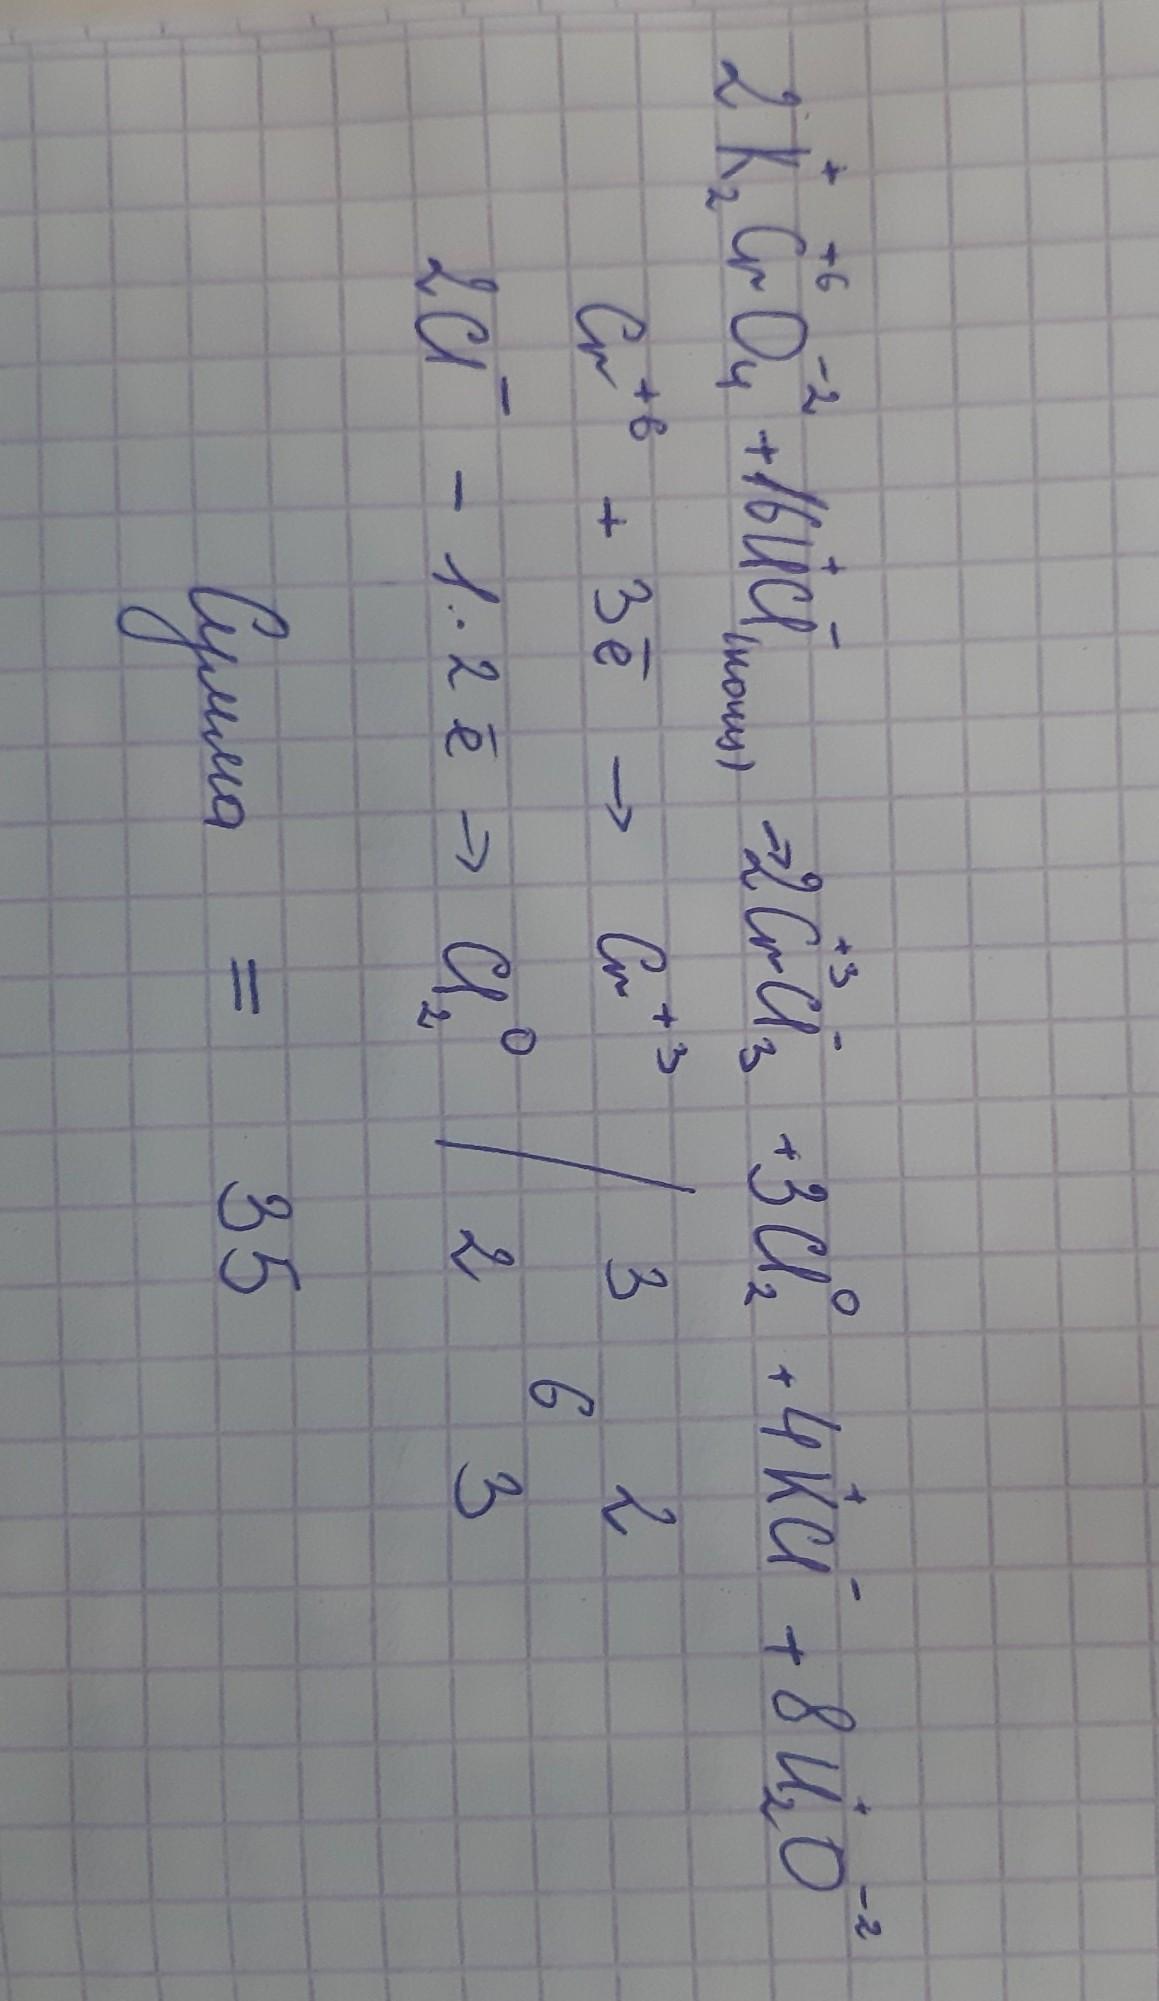 2K₂⁺Cr⁺⁶O₄⁻² + 16H⁺Cl⁻(конц) → 2Cr⁺³Cl₃⁻ + 3Cl₂⁰ + 4K⁺Cl⁻ + 8H₂⁺O⁻²
Cr⁺⁶ + 3ē → Cr⁺³ / 3 2
6
2Cl⁻ - 1·2ē → Cl₂⁰ / 2 3
Сумма = 35